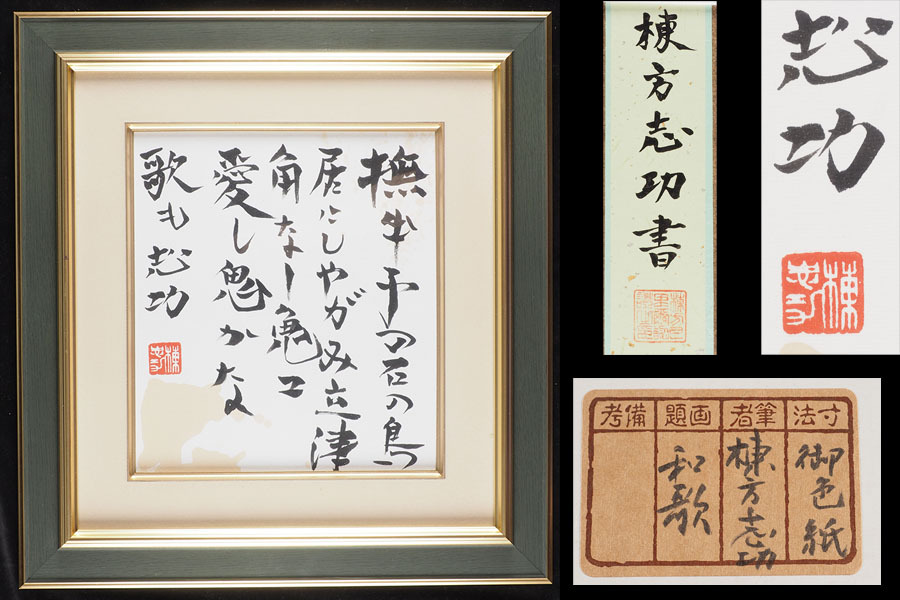 撫牛子の石の鳥
居にしやがみ立津
角なし鬼コ
愛し鬼かな
歌も志功
棟方志功書
志功
寸法
筆者
画題
備考
御色紙
棟方志功
和歌